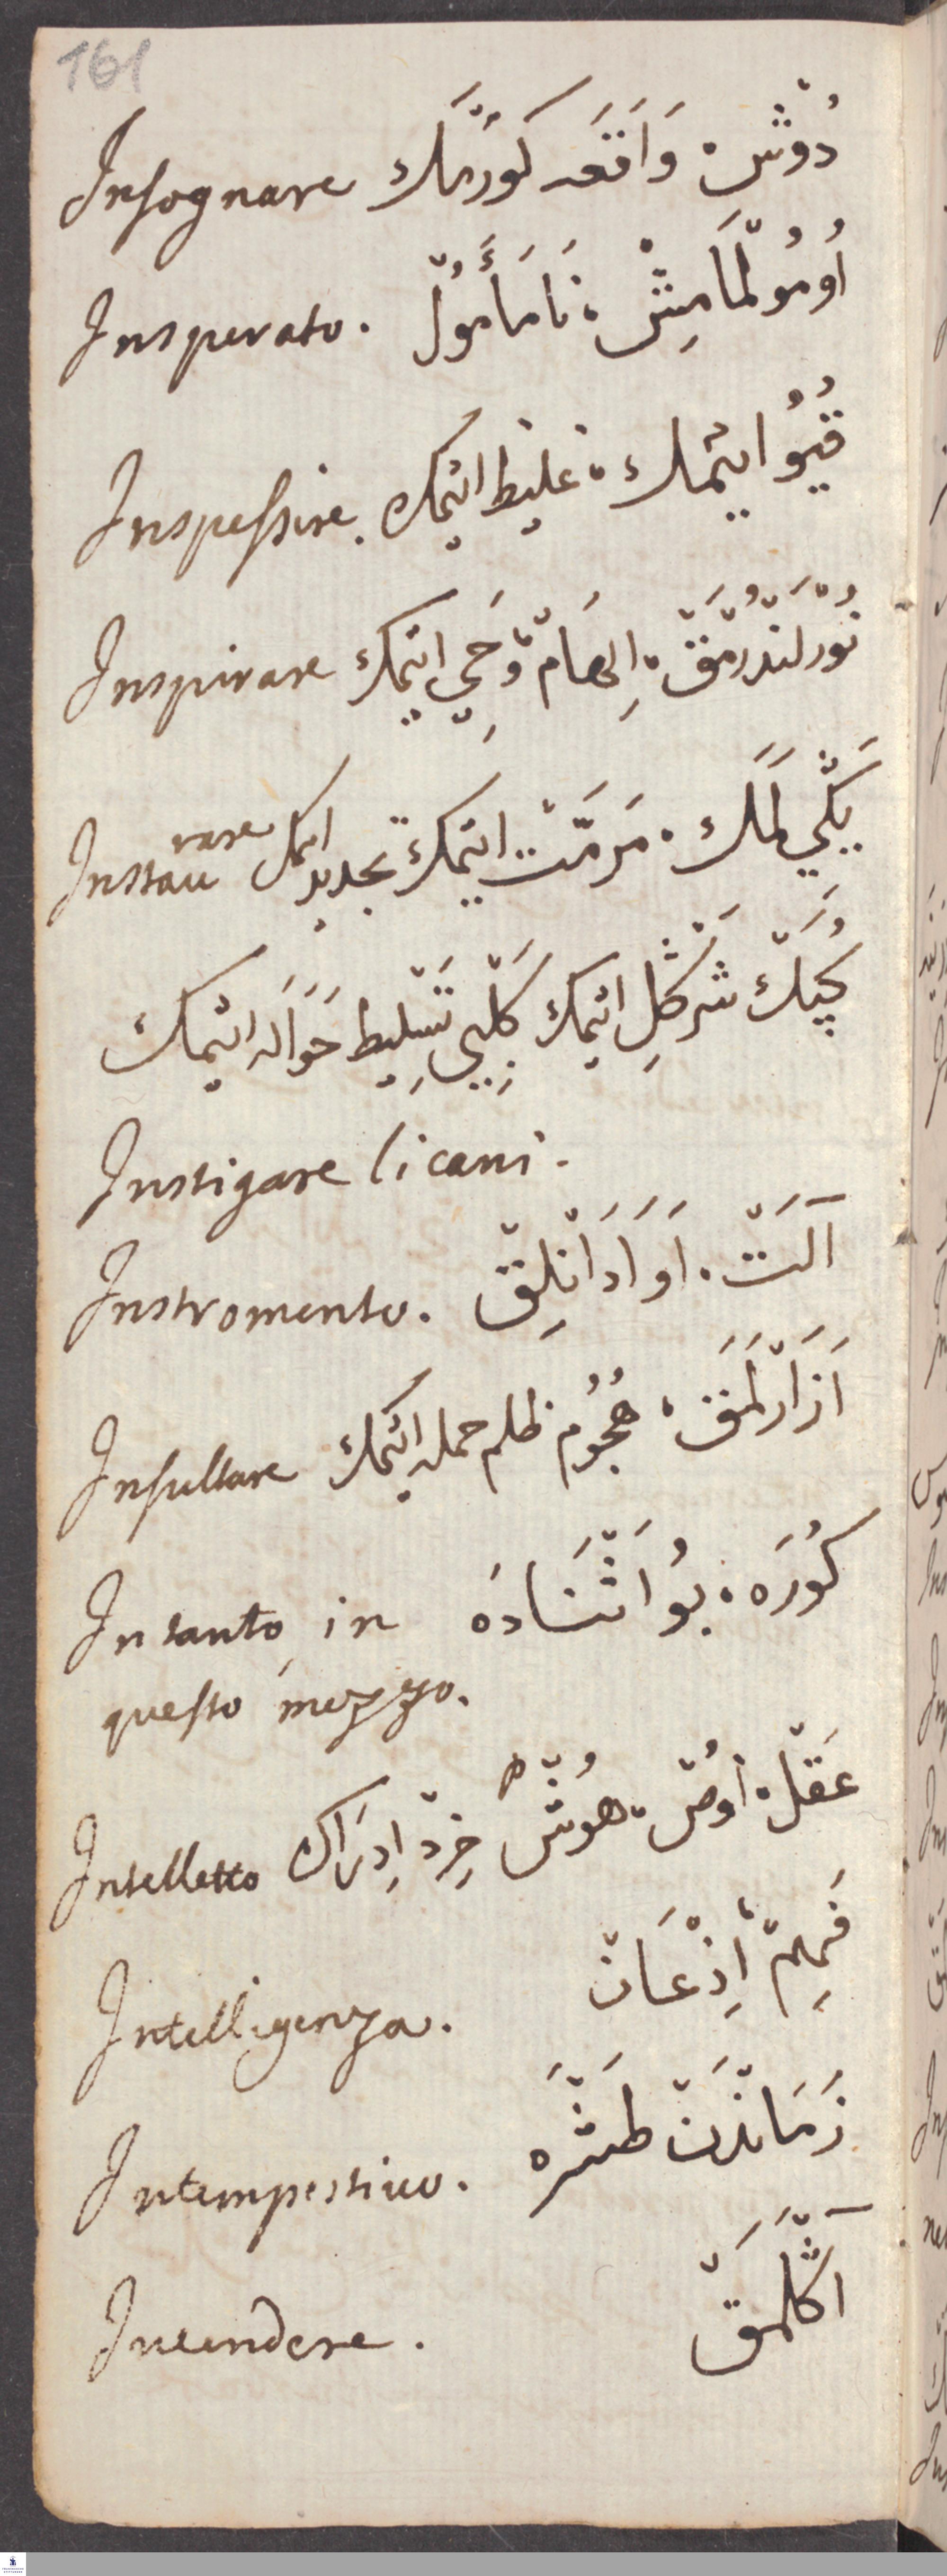 161
Insognare دُوشْ، وَاقَعَه كورمَك
Insperato. اُومُولْمَامِشْ، نَامَأْمُولْ
Inspessire. قُيُو ايتْمك، غليظ ايتمك
Inspirare نُورْلَنْدُرْمَقْ، اِلهَامْ، وَحِي ايتمك
Instaurare يَكْيِلَمَك، مَرمَّتْ ايتمك تجديد ايتمك
شَرْكِلِ ايتمك كَلْبِي تَسْلِيط حَوَالَه ايتمك
Instigare li cani.
Instromento. آلَتْ، اَوَادَانْلِقْ
Insultare اَزَارْلَمَق، هُجُوم ظلم حمله ايتمك
Intanto, in كُورَه، بُو اَثْنَادَه
questo mezzo.
Intelletto عَقلْ، اُوصْ، هُوشْ خِرَدْ اِدرَاك
Intelligenza. فَهِمْ، اِذْعَانْ
Intempestivo. زَمَانْدَنْ طَشْرَه
Intendere. آكْلَمَقْ